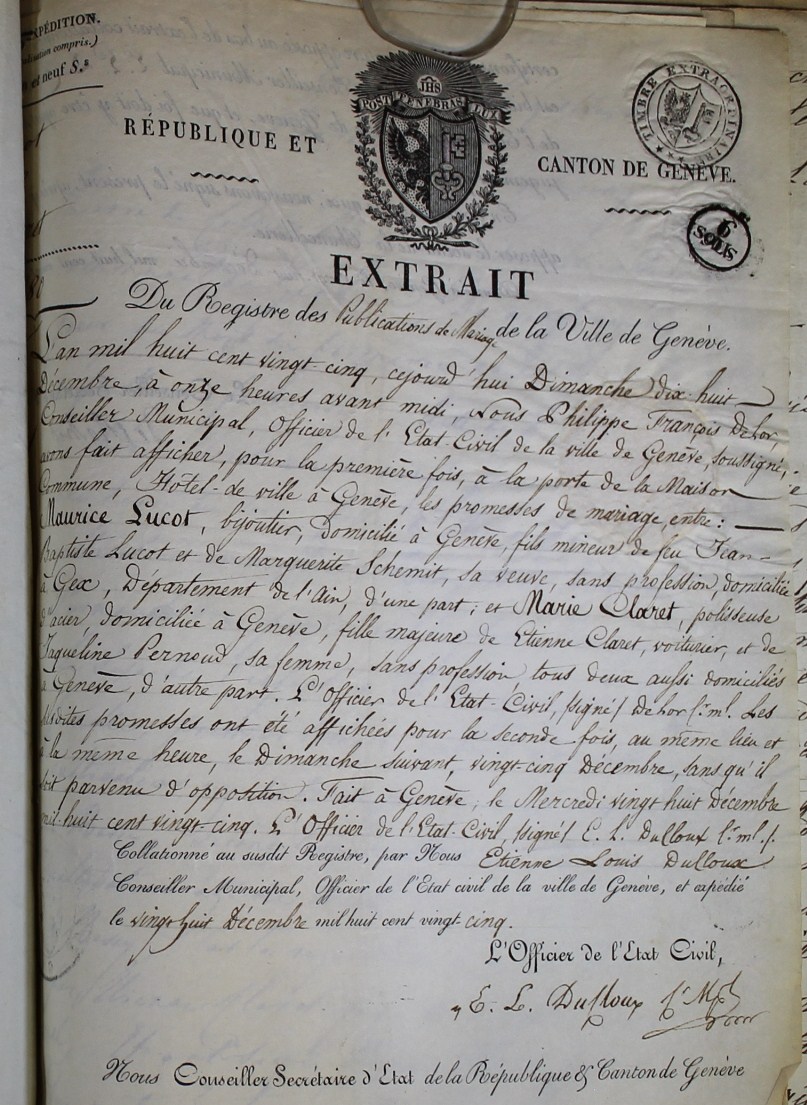 EXPÉDITION.
compris.)
neuf S.s
RÉPUBLIQUE ET
JHS
POST TENEBRAS LUX
CANTON DE GENÈVE.
TIMBRE EXTRAORDINAIRE
6
SOLS
EXTRAIT
Du Registre des Publications de Mariage de la Ville de Genève.
L'an mil huit cent vingt-cinq, cejourd'hui Dimanche dix-huit
Décembre, à onze heures avant midi, Nous Philippe François DeLor,
Conseiller Municipal, Officier de l'Etat Civil de la ville de Genève, soussigné,
avons fait afficher, pour la première fois, à la porte de la Maison
Commune, Hôtel-de ville à Genève, les promesses de mariage, entre:
Maurice Lucot, bijoutier, domicilié à Genève, fils mineur de feu Jean-
Baptiste Lucot et de Marguerite Schemit, sa veuve, sans profession, domiciliée
à Gex, Département de l'Ain, d'une part; et Marie Claret, polisseuse
d'acier, domiciliée à Genève, fille majeure de Etienne Claret, voiturier, et de
Jaqueline Pernoud, sa femme, sans profession tous deux aussi domiciliés
à Genève, d'autre part. L'Officier de l'Etat-Civil, /signé/ DeLor C.r m.l. Les
susdites promesses ont été affichées pour la seconde fois, au même lieu et
à la même heure, le Dimanche suivant, vingt-cinq Décembre, sans qu'il
soit parvenu d'opposition. Fait à Genève, le Mercredi vingt huit Décembre
mil-huit cent vingt-cinq. L'Officier de l'Etat-Civil, /signé/ E. L. Dufloux C.r m.l /.
Collationné au susdit Registre, par Nous Etienne Louis Dufloux
Conseiller Municipal, Officier de l'Etat civil de la ville de Genève, et expédié
le vingt huit Décembre mil huit cent vingt-cinq.
L'Officier de l'Etat Civil,
E. L. Dufloux C.r M.l
Nous Conseiller Secrétaire d'Etat de la République & Canton de Genève